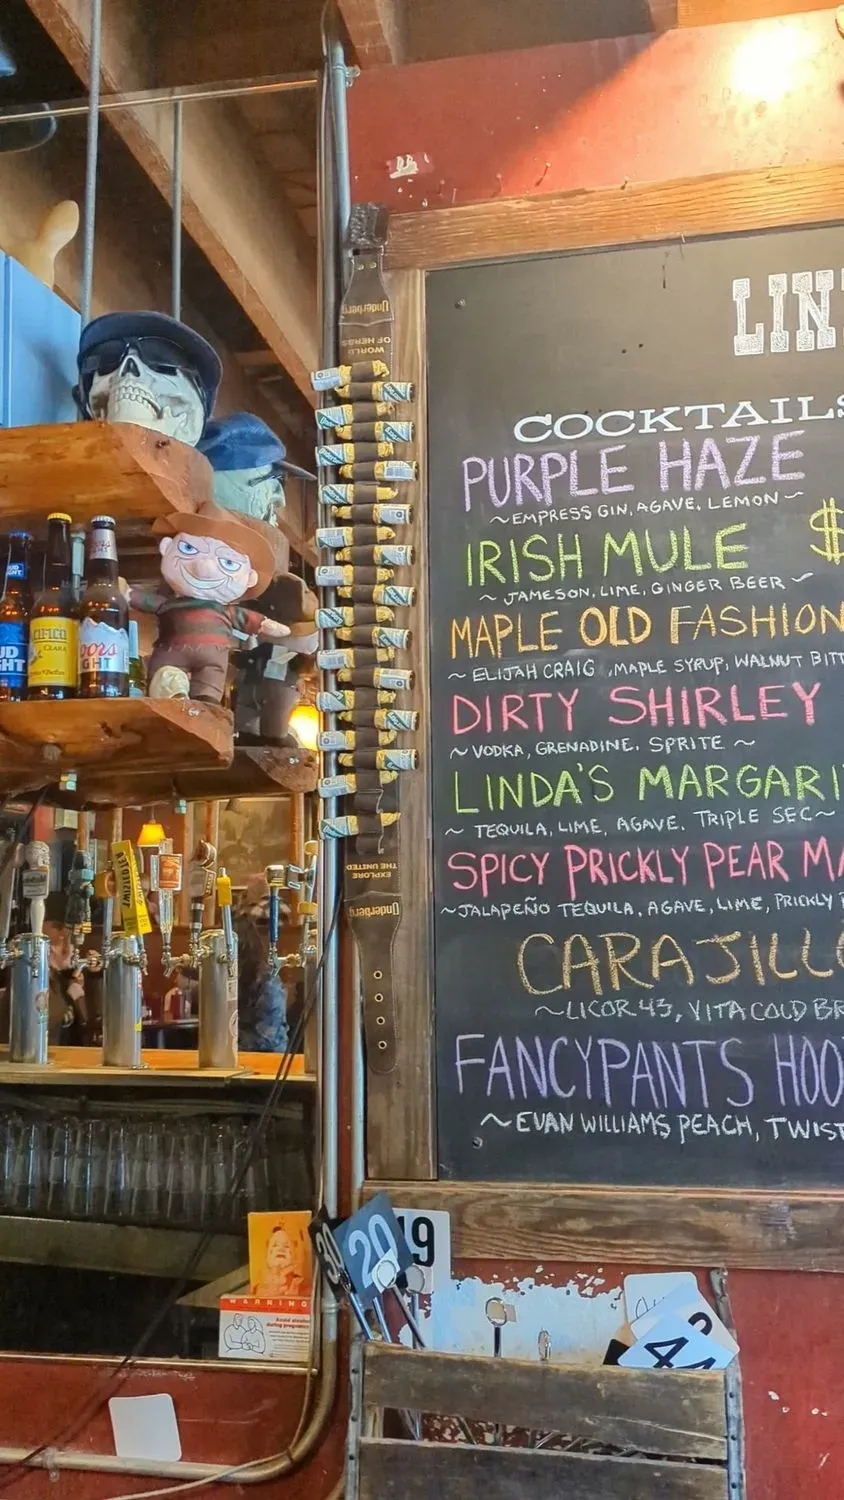 LIN
COCKTAILS
PURPLE HAZE
~EMPRESS GIN, AGAVE, LEMON~
IRISH MULE $
~JAMESON, LIME, GINGER BEER~
MAPLE OLD FASHION
~ELIJAH CRAIG, MAPLE SYRUP, WALNUT BITT
DIRTY SHIRLEY
~VODKA, GRENADINE, SPRITE~
LINDA'S MARGARI
~TEQUILA, LIME, AGAVE, TRIPLE SEC~
SPICY PRICKLY PEAR MA
~JALAPEÑO TEQUILA, AGAVE, LIME, PRICKLY
CARAJILLO
~LICOR 43, VITA COLD BR
FANCYPANTS HOO
~EVAN WILLIAMS PEACH, TWIST
Underberg
WORLD
OF HERBS
EXPLORE
THE UNITED
Underberg
UD
GHT
PACIFICO
CLARA
Coors
GHT
TWISTED
30
20
19
4
WARNING
Avoid alcohol
during pregnancy